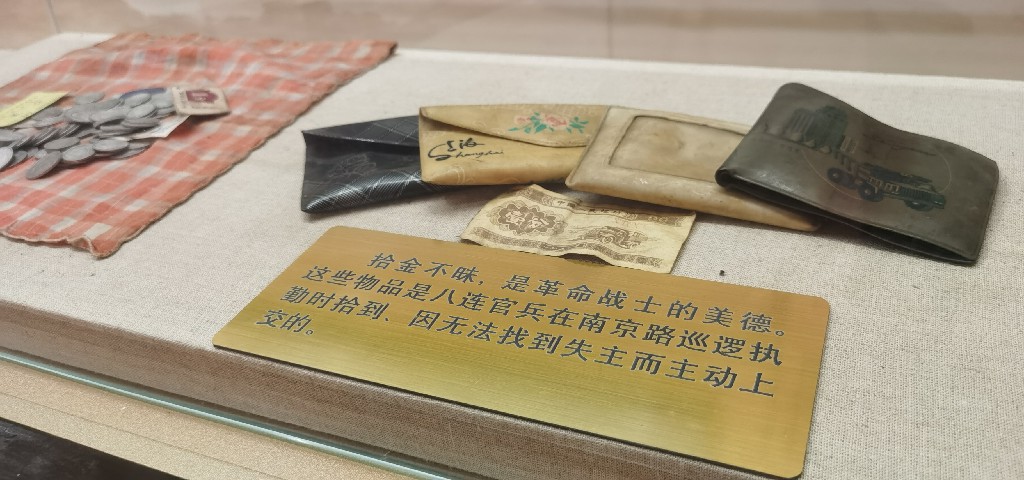 上海
Shanghai
拾金不昧，是革命战士的美德。
这些物品是八连官兵在南京路巡逻执
勤时拾到、因无法找到失主而主动上
交的。